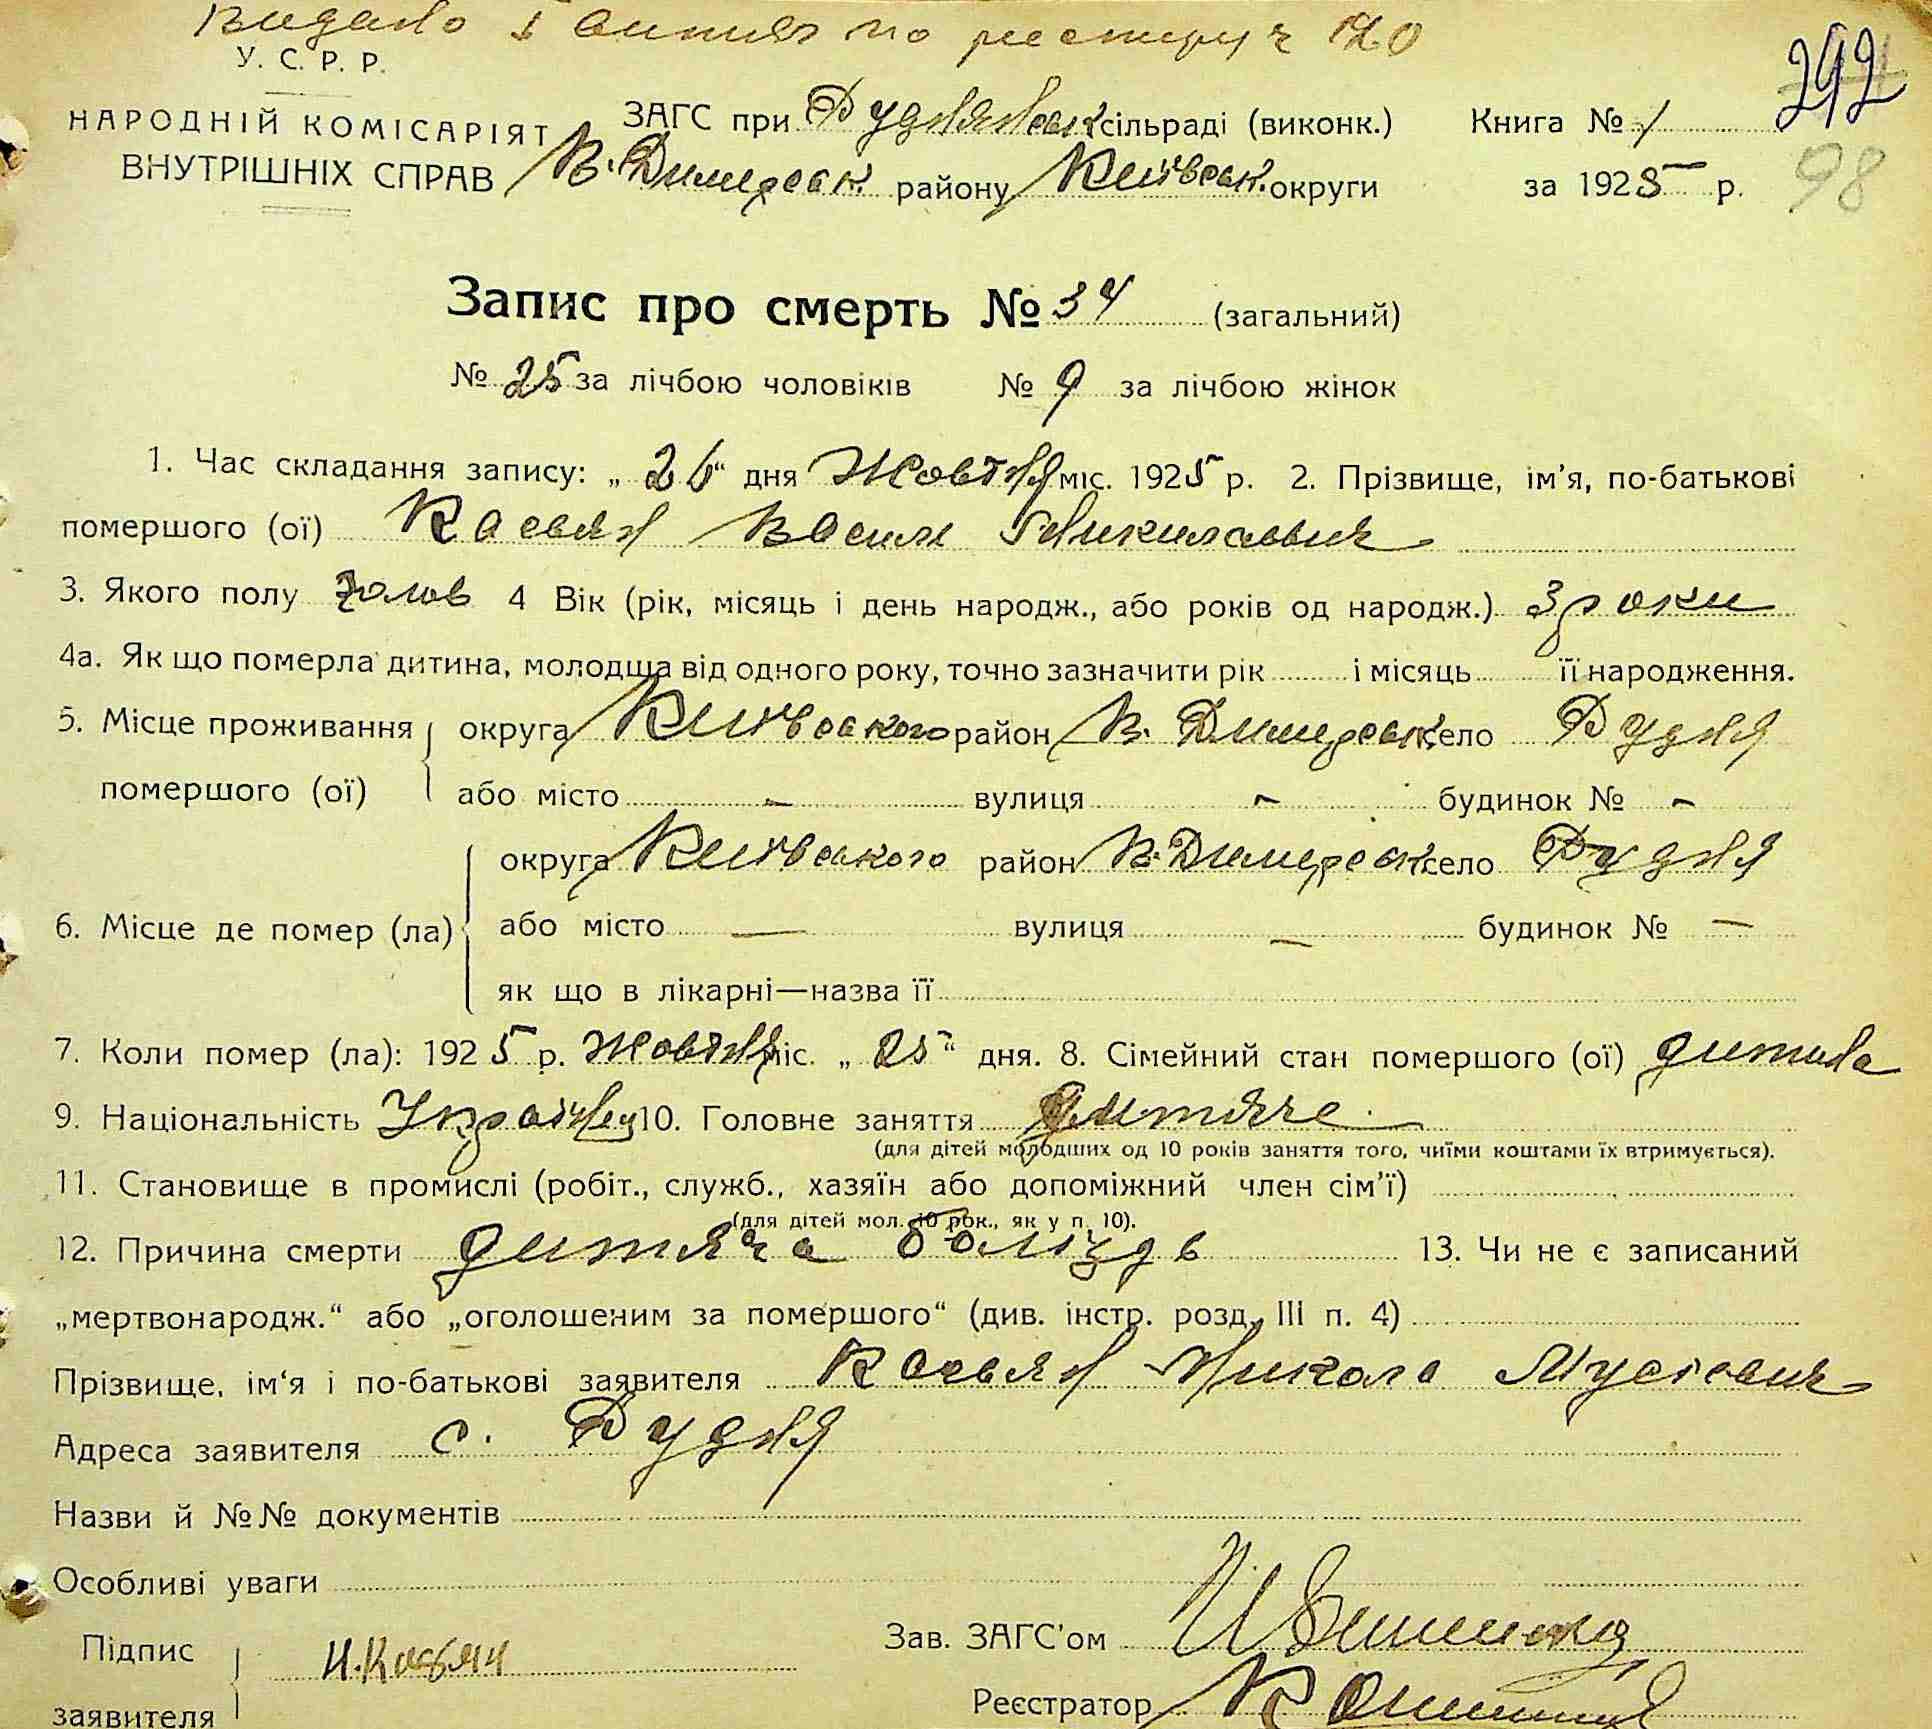 Видано витяг по реєстру ч 120
292
У. С. Р. Р.
НАРОДНІЙ КОМІСАРІЯТ
ВНУТРІШНІХ СПРАВ
ЗАГС при Руднянськ сільраді (виконк.) Книга № 1
В. Димерськ. району Київськ. округи за 1925 р. 98
Запис про смерть № 34 (загальний)
№ 25 за лічбою чоловіків № 9 за лічбою жінок
1. Час складання запису: „26“ дня Жовтня міс. 1925 р. 2. Прізвище, ім’я, по-батькові
помершого (ої) Касьян Василь Миколаєвич
3. Якого полу чолов 4 Вік (рік, місяць і день народж., або років од народж.) 3 роки
4а. Як що померла дитина, молодша від одного року, точно зазначити рік і місяць її народження.
5. Місце проживання помершого (ої) округа Київського район В. Димерськ село Рудня
або місто – вулиця – будинок № –
6. Місце де помер (ла) округа Київського район В. Димерськ село Рудня
або місто — вулиця — будинок № —
як що в лікарні—назва її
7. Коли помер (ла): 1925 р. Жовтня міс. „25“ дня. 8. Сімейний стан помершого (ої) дитина
9. Національність Українец 10. Головне заняття дитяче
(для дітей молодших од 10 років заняття того, чиїми коштами їх втримується).
11. Становище в промислі (робіт., служб., хазяїн або допоміжний член сім’ї)
(для дітей мол. 10 рок., як у п. 10).
12. Причина смерти дитяча боліздь 13. Чи не є записаний
„мертвонародж.“ або „оголошеним за помершого“ (див. інстр. розд. III п. 4)
Прізвище, ім‘я і по-батькові заявителя Касьян Микола Мусієвич
Адреса заявителя с. Рудня
Назви й №№ документів
Особливі уваги
Підпис заявителя Н. Касьян
Зав. ЗАГС’ом
Реєстратор